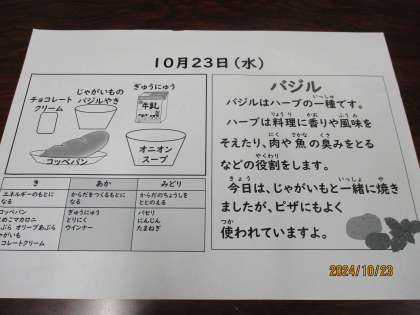 10月23日（水）
チョコレート
クリーム
じゃがいもの
バジルやき
ぎゅうにゅう
牛乳
コッペパン
オニオン
スープ
き
あか
みどり
エネルギーのもとに
なる
からだをつくるもとに
なる
からだのちょうしを
ととのえる
コッペパン
めこマカロニ
ぶら オリーブあぶら
がいも
コレートクリーム
ぎゅうにゅう
とりにく
ウインナー
パセリ
にんじん
たまねぎ
バジル
バジルはハーブの一種です。
いっしゅ
ハーブは料理に香りや風味を
りょうり かお ふうみ
そえたり、肉や魚の臭みをとる
にく さかな くさ
などの役割をします。
やくわり
今日は、じゃがいもと一緒に焼き
きょう いっしょ や
ましたが、ピザにもよく
使われていますよ。
つか
2024/10/23